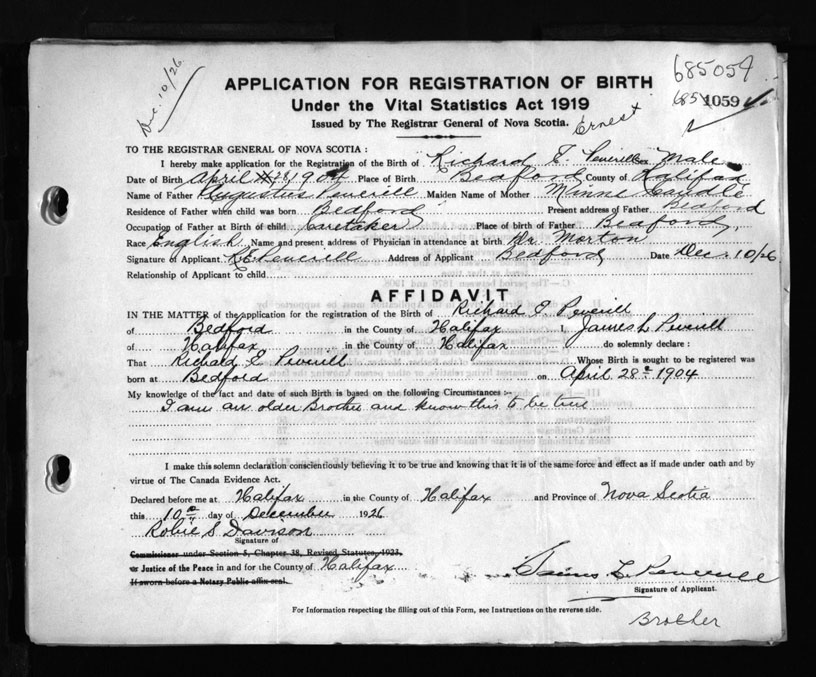 Dec. 10/26
685059
APPLICATION FOR REGISTRATION OF BIRTH
Under the Vital Statistics Act 1919
685 1059
Issued by The Registrar General of Nova Scotia.
Ernest
TO THE REGISTRAR GENERAL OF NOVA SCOTIA:
I hereby make application for the Registration of the Birth of Richard E. Peverill Sex Male
Date of Birth April 28, 1904 Place of Birth Bedford County of Halifax
Name of Father Augustus Peverill Maiden Name of Mother Minne Caudle
Residence of Father when child was born Bedford Present address of Father Bedford
Occupation of Father at Birth of child Caretaker Place of birth of Father Bedford
Race English Name and present address of Physician in attendance at birth Dr. Morton
Signature of Applicant R E Peverill Address of Applicant Bedford Date Dec. 10/26
Relationship of Applicant to child
AFFIDAVIT
IN THE MATTER of the application for the registration of the Birth of Richard E Peverill
of Bedford in the County of Halifax I, James L Peverill
of Halifax in the County of Halifax do solemnly declare:
That Richard E Peverill Whose Birth is sought to be registered was
born at Bedford on April 28th 1904
My knowledge of the fact and date of such Birth is based on the following Circumstances:-
I am an older Brother and know this to be true
I make this solemn declaration conscientiously believing it to be true and knowing that it is of the same force and effect as if made under oath and by
virtue of The Canada Evidence Act.
Declared before me at Halifax in the County of Halifax and Province of Nova Scotia
this 10th day of December 1926
Robie S Davison
Signature of
Commissioner under Section 5, Chapter 38, Revised Statutes, 1923.
or Justice of the Peace in and for the County of Halifax
If sworn before a Notary Public affix seal.
James L Peverill
Signature of Applicant.
For Information respecting the filling out of this Form, see Instructions on the reverse side.
Brother